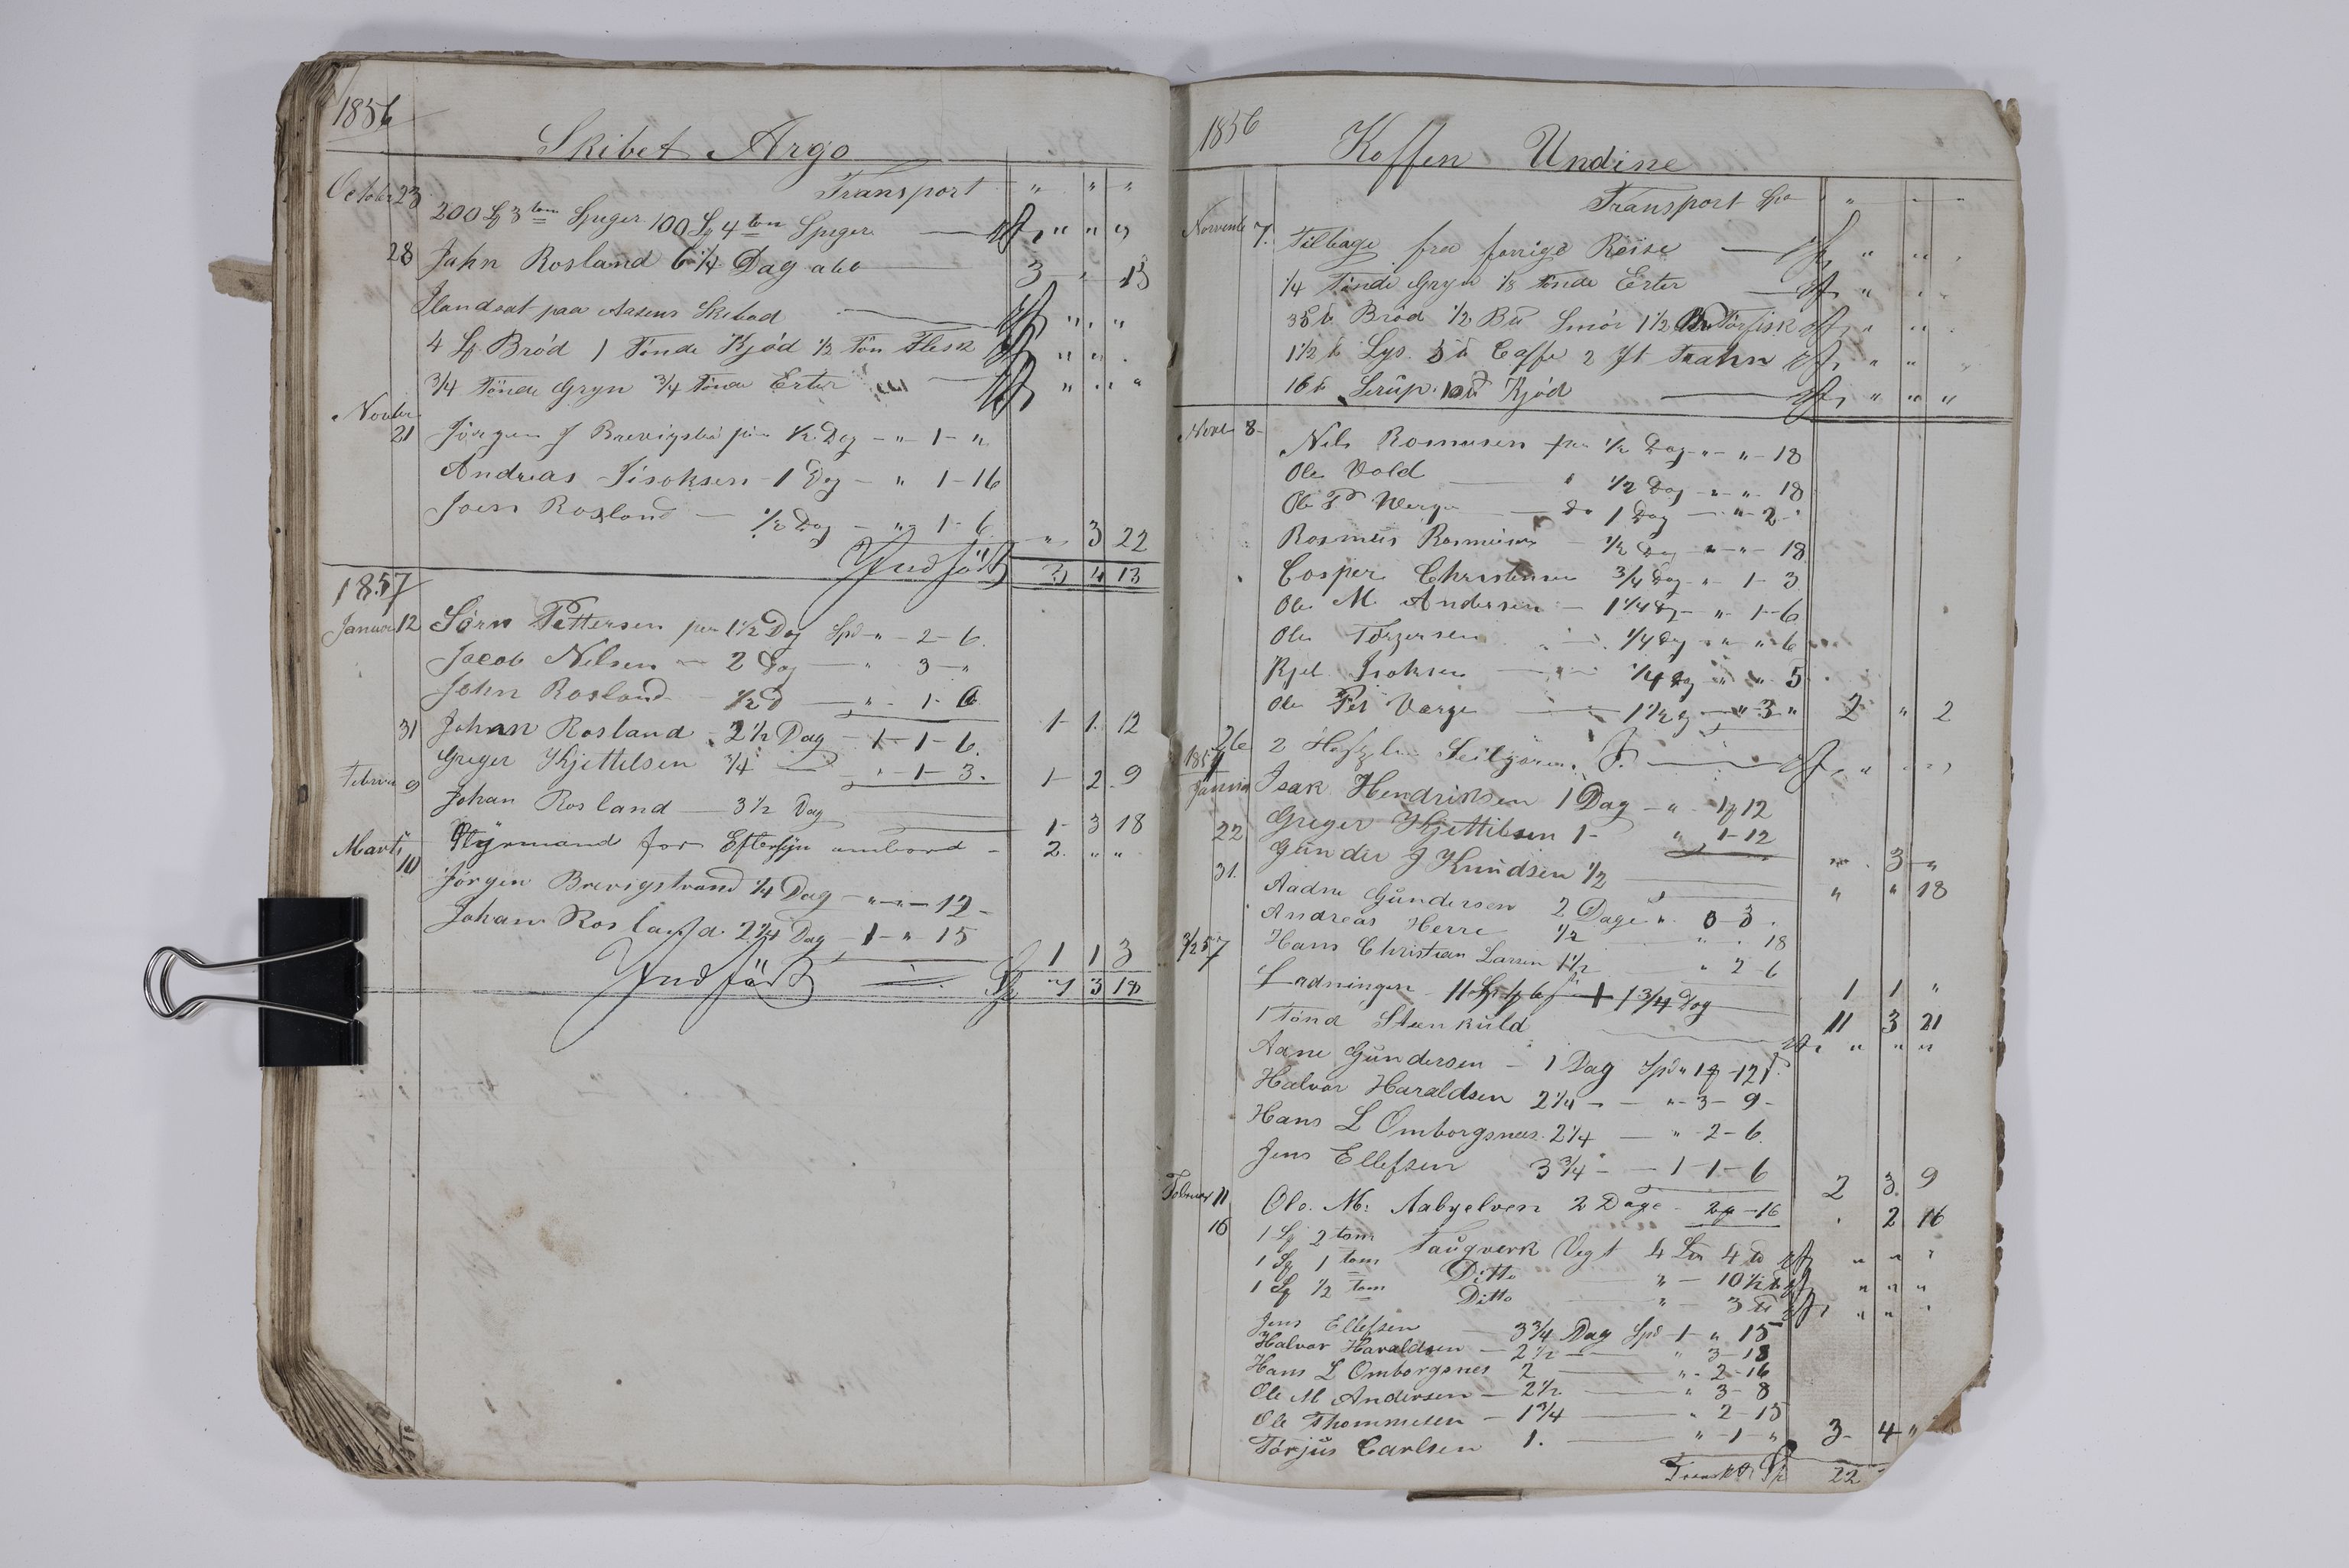 1856
Skibet Argo
October 23 Transport " " "
200 3 tom Spiger 100 4 tom Spiger " " "
28 Jahn Rosland 6 1/4 Dag 3 " 13
Ilandsat paa Aasens Skibad " " "
4 Brød 1 Tønde Kjød 1/2 Tøn Flesk " " "
3/4 Tønde Gryn 3/4 Tønde Erter " " "
Novbr
21 Jörgen 1/2 Dag - " 1 - "
Andreas 1 Dag - " 1-16
Rosland - 1/2 Dag - " 1-6 " 3 22
Indfört 3 4 13
1857
Januar 12 Sörn Pettersen 1 1/2 Dag Spd " - 2-6
Jacob Nilsen - 2 Dag - " 3 - "
John Rosland - 1/2 d - " - 1-6 1 - 1 12
31 Johan Rosland 2 1/2 Dag - 1-1-6
Greger Kjettelsen 3/4 " - 1-3. 1 - 2 9
Februar 9 Johan Rosland - 3 1/2 Dag 1 - 3 18
Marts Styrmand for Eftersyn ombord - 2 " "
10 Jörgen Brevigstrand 1/4 Dag - " - " - 12 -
Johan Rosland 2 1/4 Dag - 1 - " 15 1 1 3
Indfört 7 3 18
1856
Koffen Undine
Transport " " "
November 7. Tilbage fra forrige Reise " " "
1/4 Tønde Gryn 1/8 Tønde Erter " " "
Brød 1/2 Smör 1 1/2 Törfisk " " "
1 1/2 Lys 5 Caffe 2 Trahn " " "
16 Sirup 10 Kjød " " "
Novr 8 - Nils Rasmusen 1/2 Dag - " - " - 18
Ole Vold 1/2 Dag - " - " - 18
Ole P do 1 Dag - " - 2 - "
Rasmus Rasmusen 1/2 Dag " - " - 18
Casper Christensen 3/4 Dag " - 1-3
Ole M. Andersen - 1 1/4 Dg - " 1-6
Ole Torgersen 1/4 Dag " " 6
Kjel Isaksen 1/4 Dag " " 5
Ole Varge 1 1/2 " 3 " 2 " 2
26 2 Seilgarn " " "
1857
Januar Isak Hendriksen 1 Dag - " - 1-12
22 Greger Kjettilsen 1 - " 1-12 " 3 "
31. Gunder J Knudsen 1/2 " " 18
Aadne Gundersen 2 Dage " 3 .
Andreas Herre 1/2 " . 18
3/2 57 Hans Christian Larsen 1 1/2 " 2-6 1 1 "
Ladningen 1 3/4 Dag 11 3 21
1 Tønd Steenkuld " " "
Aane Gundersen - 1 Dag Spd " 1 - 12
Halvor Haraldsen 2 1/4 - - " - 3 - 9 -
Hans L Omborgsnes 2 1/4 - " - 2-6.
Jens Ellefsen 3 3/4 - - 1-1-6 2 3 9
Februar 11 Ole M: Aabyelven 2 Dage - 2 - 16 . 2 16
16 1 2 tom Taugverk Vegt 4 4 " " "
1 1 tom Ditto " - 10 1/2 " " "
1 1/2 tom Ditto " - 3 " " "
Jens Ellefsen 3 3/4 Dag Spd 1 " 15
Halvor Haraldsen - 2 1/2 - " 3-18
Hans L Omborgsnes 2 " - 2-16
Ole M Andersen - 2 1/2 " 3-8
Ole Thommesen - 1 3/4 " 2-15
Tørjus Carlsen 1. " - 1 - " 3 - 4 "
22